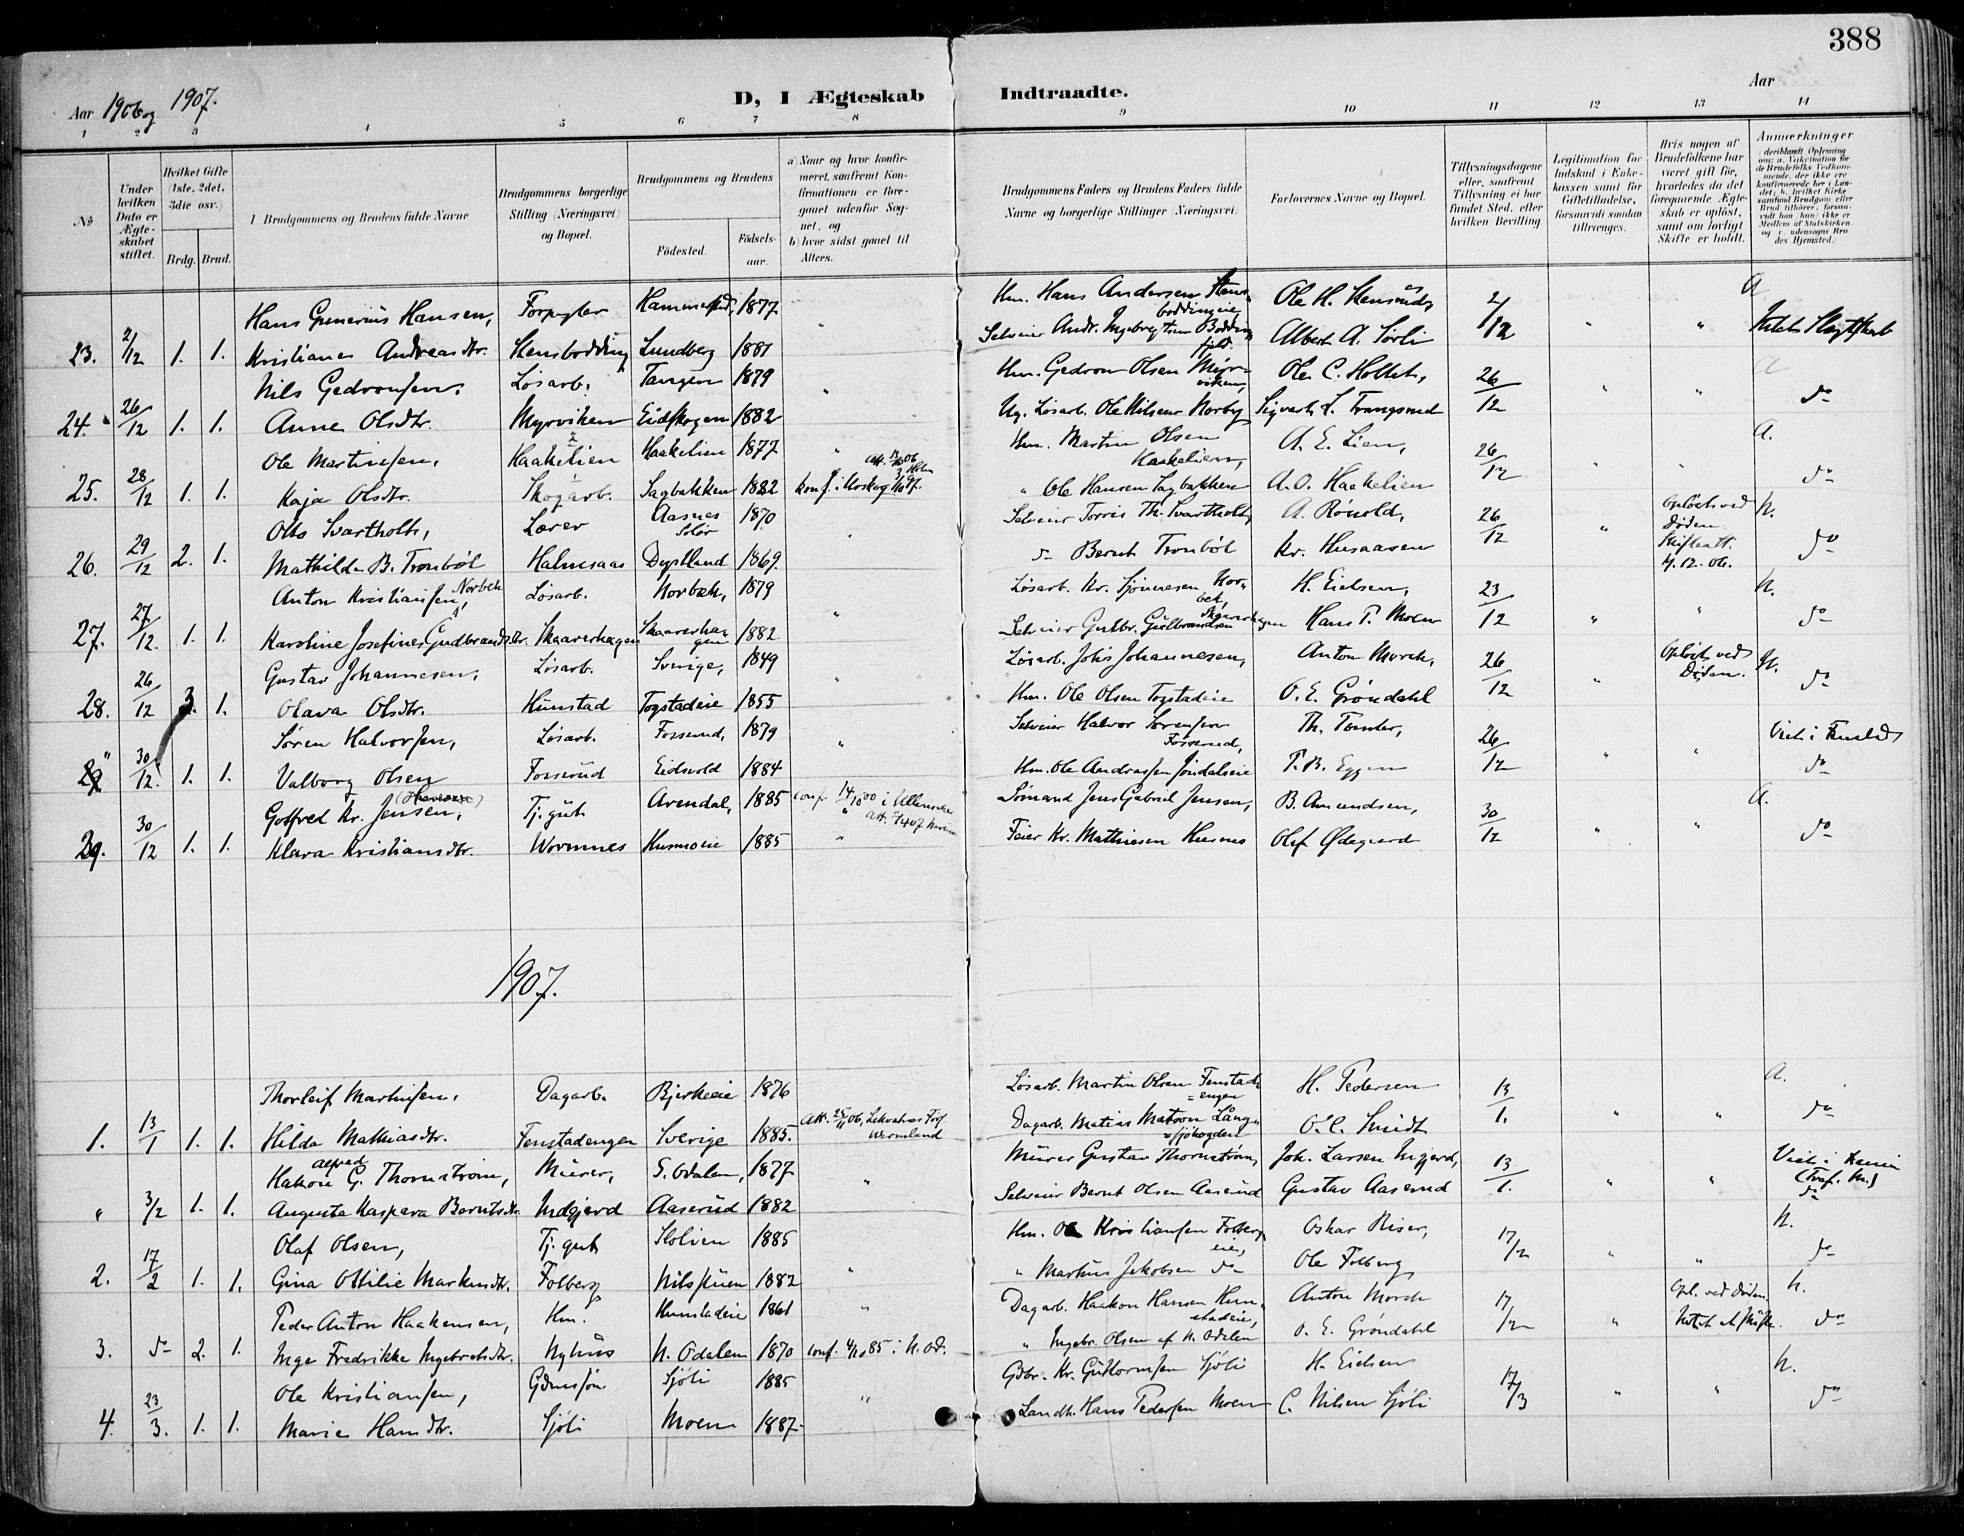 388
Aar 1906 og 1907.
D, I Ægteskab Indtraadte.
Aar
1 2 3 4 5 6 7 8 9 10 11 12 13 14
No
Under hvilken Dato er Ægteskabet stiftet.
Hvilket Gifte (1ste, 2det, 3die osv.)
Brdg. Brud.
Brudgommens og Brudens fulde Navne
Brudgommens borgerlige Stilling (Næringsvei) og Bopæl.
Brudgommens og Brudens
Fødested. Fødselsaar.
a) Naar og hvor konfirmeret, saafremt Konfirmationen er foregaaet udenfor Sognet, og
b) hvor sidst gaaet til Alters.
Brudgommens Faders og Brudens Faders fulde Navne og borgerlige Stillinger (Næringsvei)
Forlovernes Navne og Bopæl.
Tillysningsdagene eller, saafremt Tillysning ei har fundet Sted, efter hvilken Bevilling
Legitimation for Indskud i Enkekassen samt for Giftetilladelse, forsaavidt saadan tiltrænges.
Hvis nogen af Brudefolkene har været gift før, hvorledes da det foregaaende Ægteskab er opløst, samt om lovligt Skifte er holdt.
Anmærkninger
Hans Hansen, Hammerstad, 1877 Hm. Hans Andersen Stensboddingeie Ole H. Stensrud, 2/12 a
23. 2/12 1. 1. Kristiane Andreasdtr. Stensbodding Lundberg 1881 Selveier Andr. Ingebrigtsen Albert A. Sørli " "
Nils Gedeonsen. Løsarb. Tangen 1879 " Hm. Gedeon Olsen Myrviken, Ole C. Holtet, 26/12 a
24. 26/12 1. 1. Anne Olsdtr. Myrviken Eidskogen 1882 Ug. Løsarb. Ole Nilsen Norby Sigvart L. Trangsrud " " do
Ole Martinsen, Haakelien Haakelien 1877 " Hm. Martin Olsen Haakelien, A. E. Lien, 26/12 a.
25. 28/12 1. 1. Kaja Olsdtr. Skogarb. Sagbakken 1882 Konf. i " Ole Hansen Sagbakken A. O. Haakelien " " do
Otto Svartholt, Lærer Aasnes Solør 1870 Selveier Torris Th. Svartholt, A. Rönold, 26/12 Opløst ved Døden h.
26. 29/12 2. 1. Mathilde B. Tronbøl Halmsaas Dystland 1869. do Bernt Tronbøl Kr. Husaasen " Skifteatt. 4.12.06. do
Anton Kristiansen Norbek, Løsarb. Norbek, 1879 Løsarb. Kr. Norbek, H. Eielsen, 23/12 h.
27. 27/12. 1. 1. Karoline Josefine Gudbrandsdtr. Skaaverhagen Skaaverhagen 1882 " Selveier Gulbr. Gulbrandsen Hans P. Moen " " do
Gustav Johannesen, Løsarb. Sverige, 1849 Løsarb. Johs Johannesen, Anton Morch, 26/12 Opløst ved Døden. h.
28. 26/12 3. 1. Olava Olsdtr. Hunstad Togstadeie 1855 " Hm. Ole Olsen Togstadeie O. E. Grøndahl " do
Søren Halvorsen, Løsarb. Fosserud, 1879 Selveier Halvor Sørensen Fosserud, Th. Tomter, 26/12 Viet i Fenstad
" 30/12. 1. 1. Valborg Olsen Fosserud Eidsvold 1884 " Hm. Ole Andreassen Jøndalseie P. B. Eggen " " do
Gotfred Kr. Jensen, Tj. gut Arendal, 1885 conf. 14/10 00 i Ullensaker Sømand Jens Gabriel Jensen, B. Amundsen, 30/12 a.
29. 30/12 1. 1. Klara Kristiansdtr. Wormnes Husmoeie 1885 " Feier Kr. Mathiesen Husmo Olaf Ødegaard " " do
1907.
Thorleif Martinsen. Dagarb. Bjerkeeie 1876 Løsarb. Martin Olsen Fenstadengen H. Pedersen 13/1. a.
1. 13/1 1. 1. Hilda Mathiasdtr. Fenstadengen Sverige 1885. Wermland Dagarb. Matias Matson O. C. Smidt " " do
Hakon alfred G. Thornstrøm, Murer, S. Odalen, 1877 Murer Gustav Thornstrøm, Joh. Larsen Ingjerd, 13/1. Viet i
" 3/2 1. 1. Augusta Kaspara Berntsdtr. Indgjerd Aaserud 1882 " Selveier Bernt Olsen Aaserud Gustav Aaserud " " do
Olaf Olsen, Tj. gut 1885 Hm. Ole Kristiansen Folbergeie, Oskar Riser, 17/2 h.
2. 17/2 1. 1. Gina Ottilie Markusdtr. Folberg Nilsstuen 1882 " " Markus Jakobsen do Ole Folberg " " do
Peder Anton Haakensen, Hm. Hunstadeie 1861 " Dagarb. Haakon Hansen Hunstadeie, Anton Morch 17/2 Opl. ved Døden. h.
3. do 2. 1. Inge Fredrikke Ingebretsdtr. Nyhus N. Odalen 1870 conf. 4/10 85 i N. Od. " Ingebr. Olsen af N. Odalen O. E. Grøndahl " do
Ole Kristiansen, Gdmssøn Sjøli 1885 Gdbr. Kr. Guttormsen Sjøli H. Eielsen 17/3 h.
4. 23/3. 1. 1. Marie Hansdtr. Sjøli Moen 1887. " Landh. Hans Pedersen Moen C. Nilsen Sjøli " " do